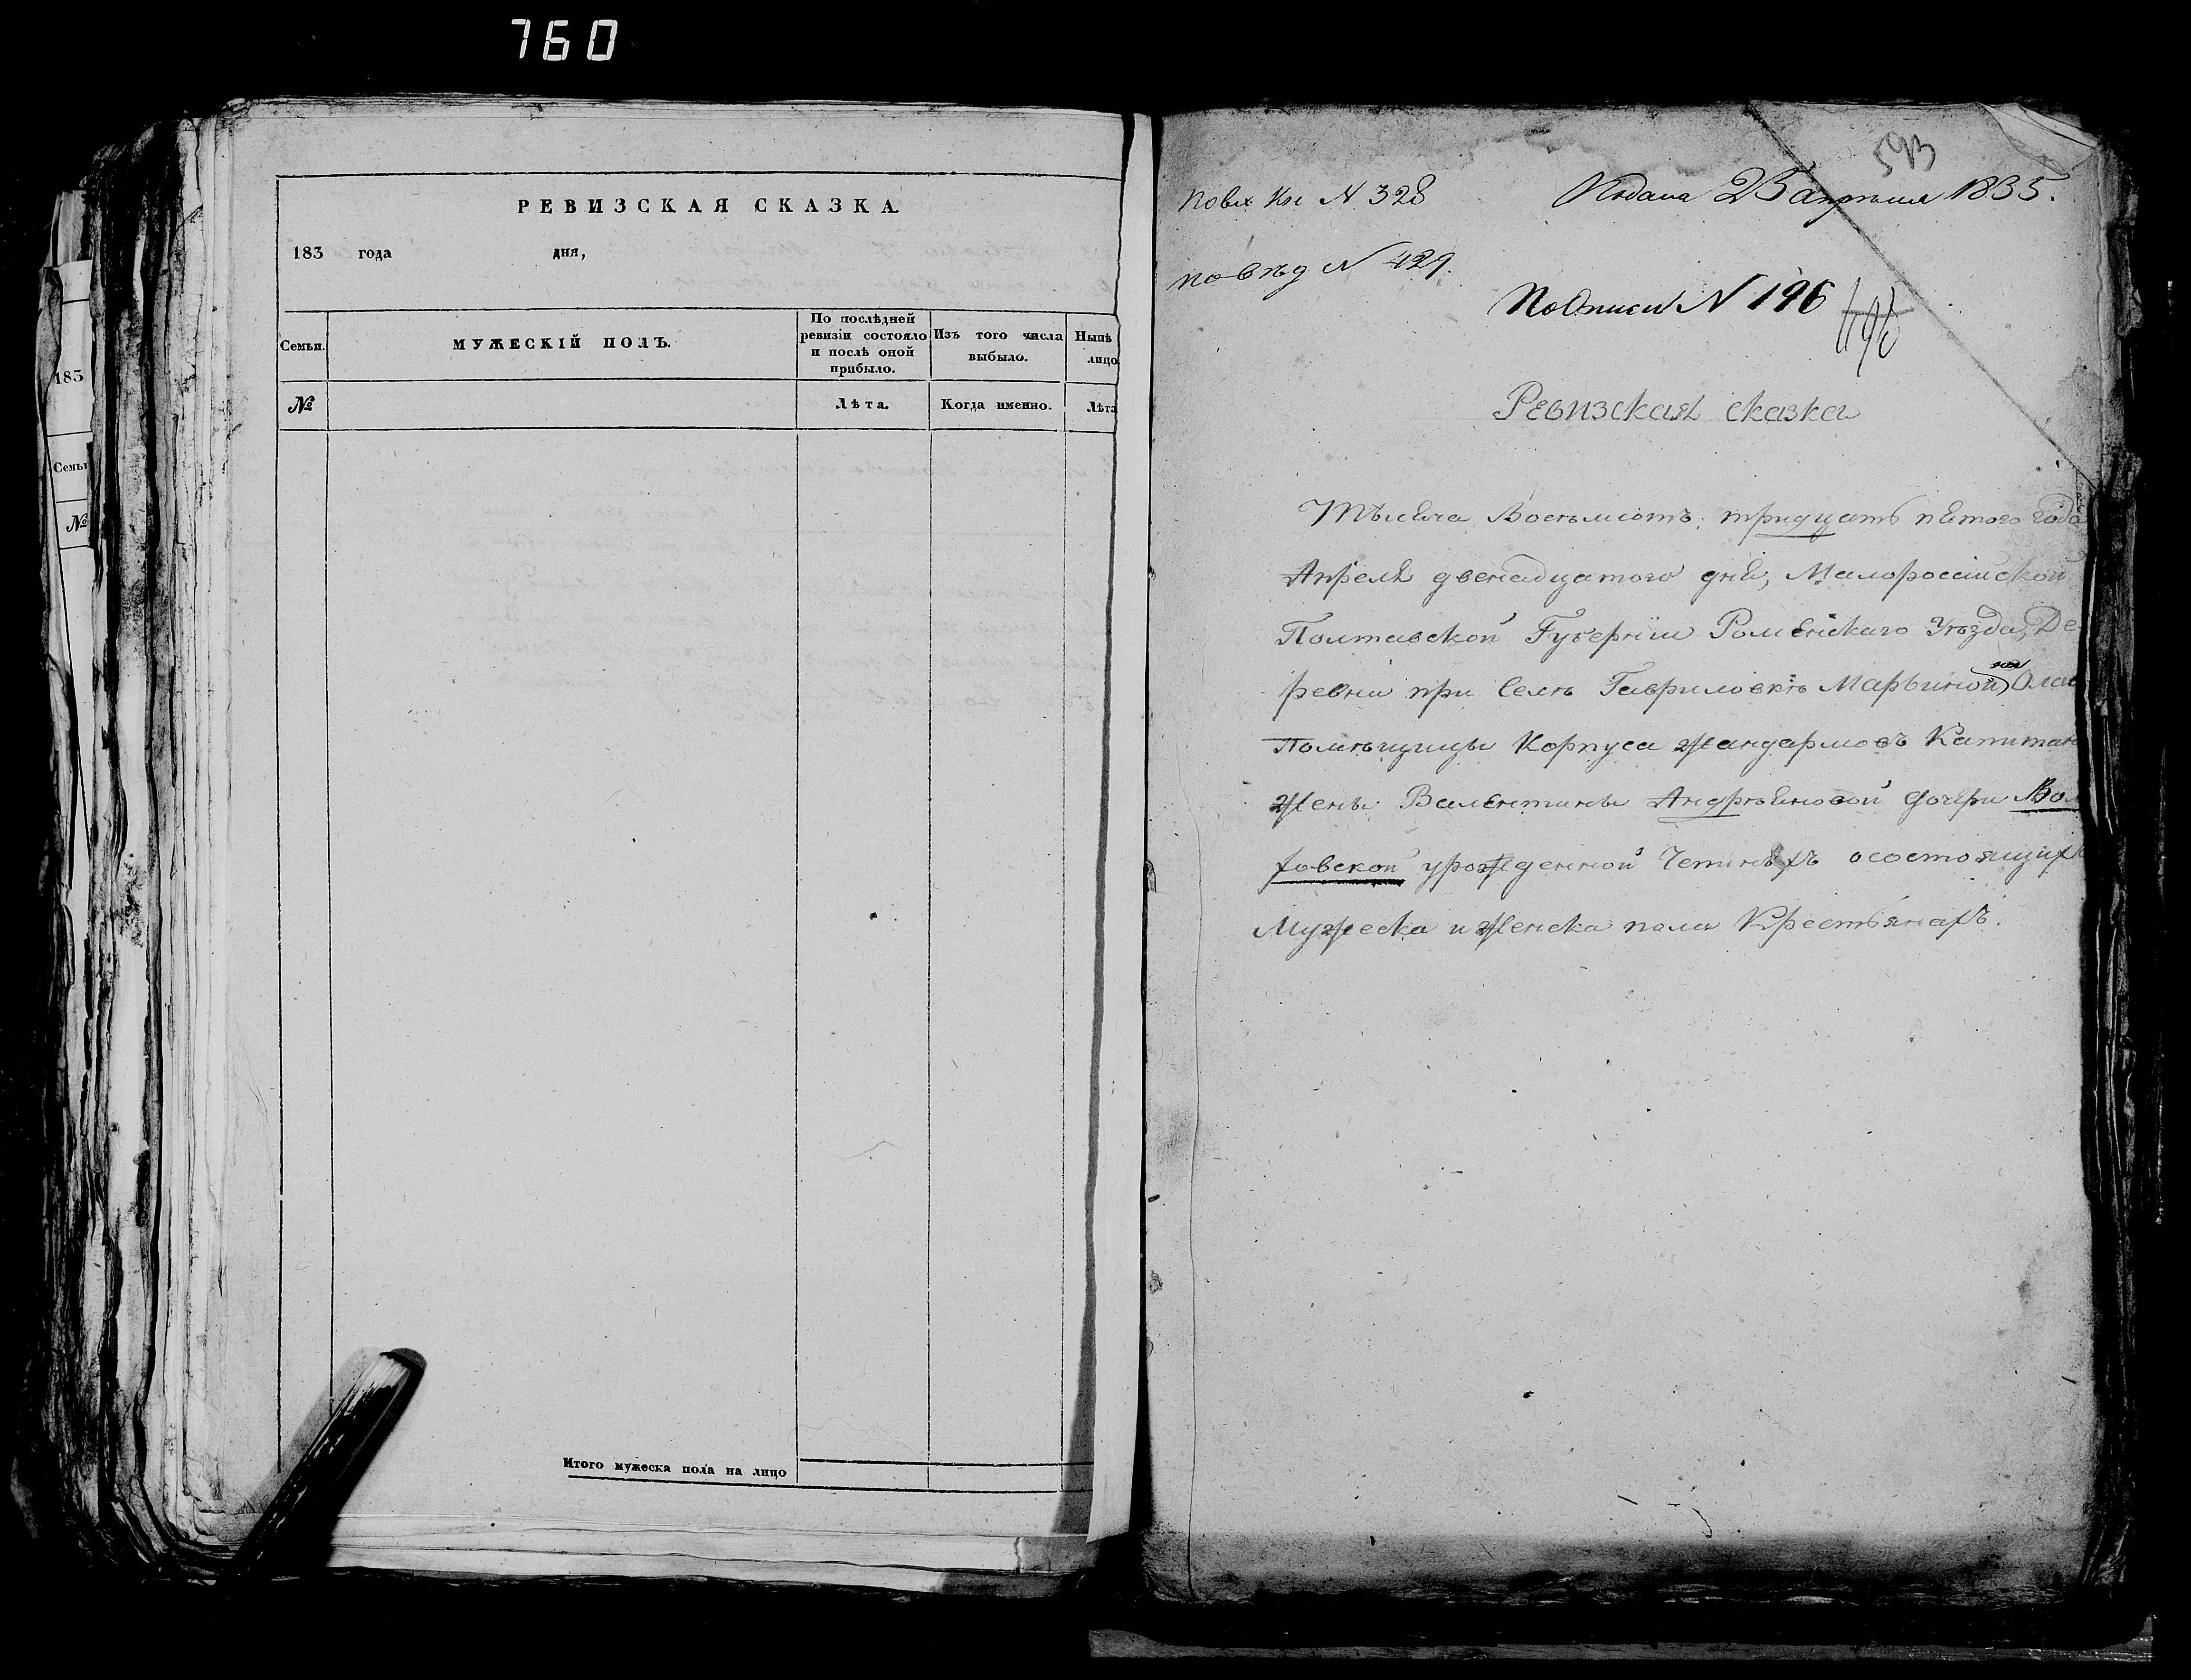 760
183
Семьи
№
РЕВИЗСКАЯ СКАЗКА.
183 года дня,
Семьи.
МУЖЕСКІЙ ПОЛЪ.
По послѣдней ревизіи состояло и послѣ оной прибыло.
Изъ того числа выбыло.
Нынѣ лицо
№
Лѣта.
Когда именно.
Лѣта
Итого мужеска пола на лицо
593
По вх Кн N 328
Подана 25 апрѣля 1835.
По вѣд N 429.
По Описи N 196
Ревизская сказка
Тысяча Восемьсотъ тридцать пятого года
Апреля двенадцатого дня, Малороссійской
Полтавской Губерніи Роменскаго Уѣзда, Де-
ревни при Селѣ Гавриловкѣ Марьиной
Помѣщицы Корпуса Жандармовъ Капитан
Жены Валентины Андрѣяновой дочери Вол
ховской урожденной осостоящихъ
Мужеска и Женска пола Крестьянахъ.